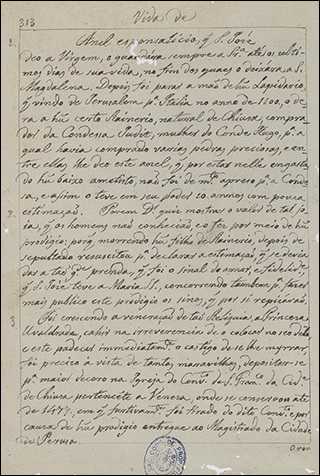 313
Vida de
1. Anel esponsalicio, q̃ S. Jozé
deo a Virgem, o guardára sempre a Sr.ª até os ulti-
mos dias de sua vida, no fim dos quaes o deixára a S.
Magdalena. Depois foi parar a mão de hũ Lapidario,
q̃ vindo de Jerusalem p.ª Italia no anno de 1100, o de
ra a hũ certo Rainerio, natural de Chiusa, compra
dor da Condessa Judit, mulher do Conde Hugo, p.ª a
qual havia comprado varias pedras preciosas, e en-
tre ellas lhe deo este anel, q̃ por estar nelle engasta
do hũ baixo ametisto, não foi de m.to apreço p.ª a Conde
sa, e assim o teve em seu poder 10 annos com pouca
estimação.
2. Porem Ds quis mostrar o valor de tal jo
ia, q̃ os homens não conhecião, e o fez por meio de hũ
prodigio: porq̃ morrendo hũ filho de Rainerio, depois de
sepultado resuscitou p.ª declarar a estimação, q̃ se devia
dar a tão gr.de prenda, q̃ foi o sinal do amor, e fidelid.e
q̃ S. Jozé teve a Maria SS. concorrendo tambem p.ª fazer
mais publico este prodigio os sinos, q̃ por si repicárão.
3. Foi crescendo a veneração de tal Reliquia, a Princeza
Uvaldrada, cahio na irreverencia de o colocar no seo dedo
e este padeceo immediatam.te o castigo de se lhe myrrar,
foi precizo á vista de tantas maravilhas, depositar-se
p.ª maior decoro na Igreja do Conv.to de S. Fran.co da Cid.e
de Chiusa pertencẽte a Veneza, onde se conservou até
de 1473, em q̃ furtivam.te foi tirado do dito Conv.to e por
cauza de hũ prodigio entregue ao Magistrado da Cidade
de Perusa.